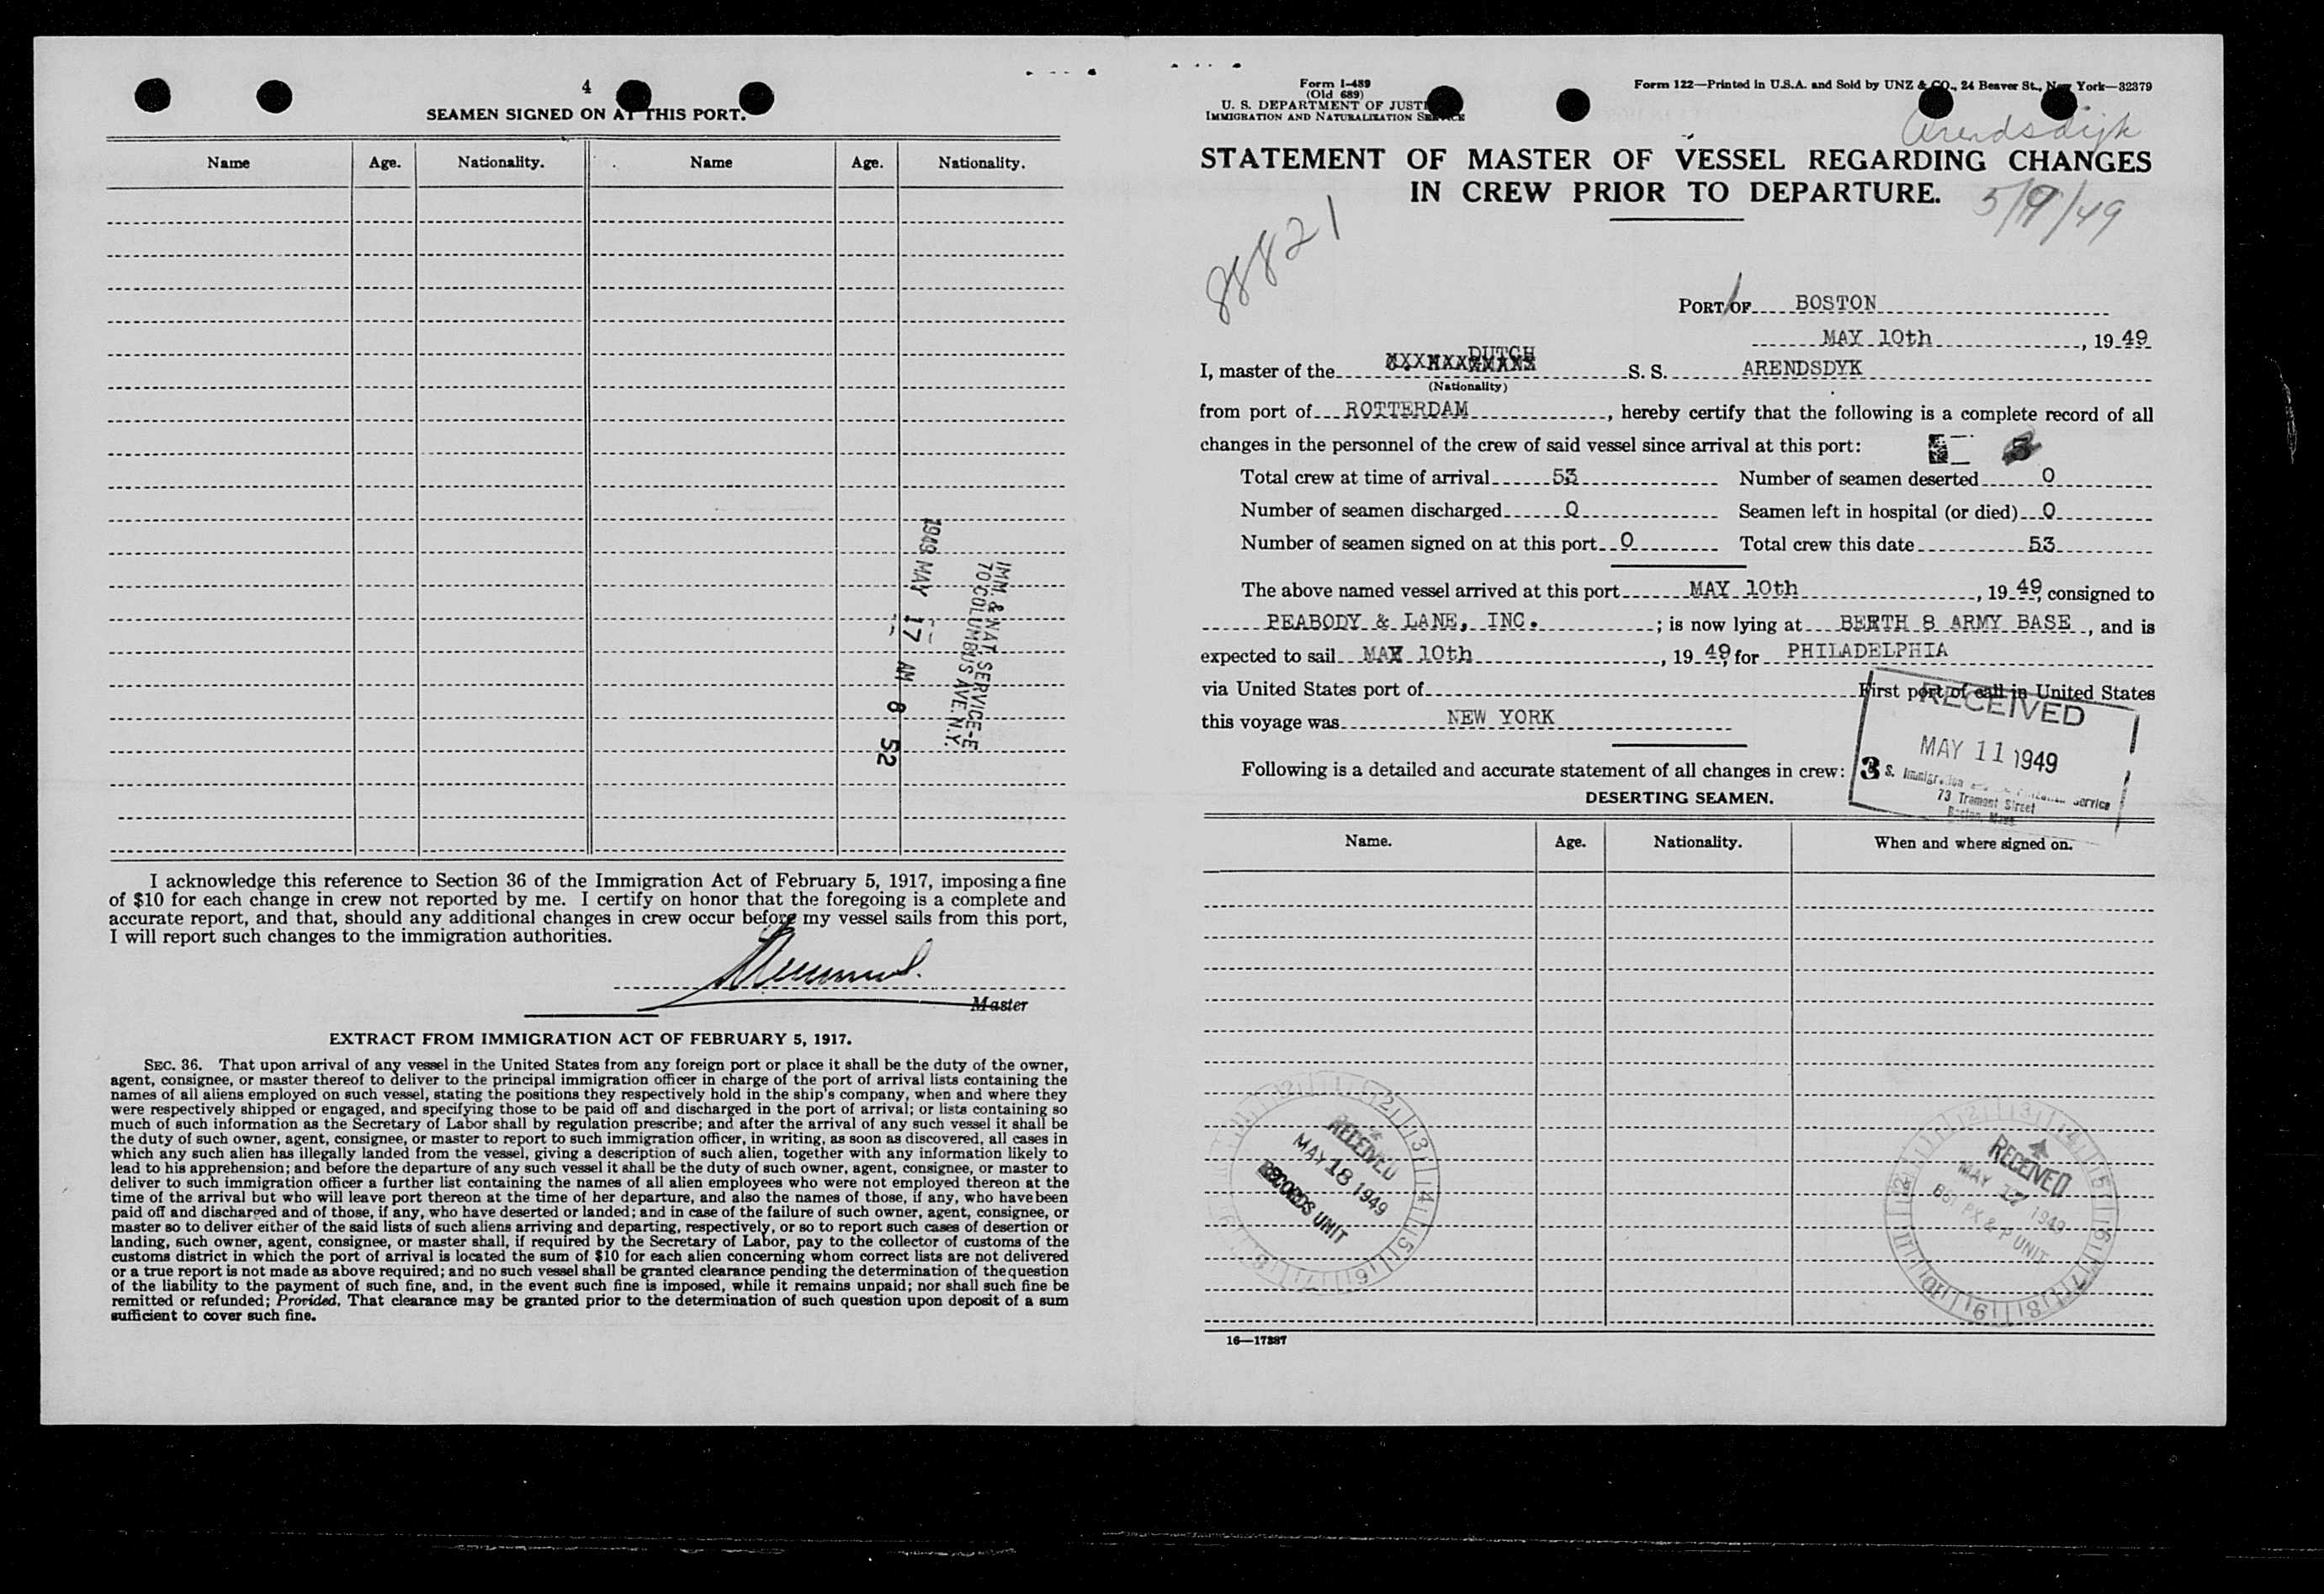 4
SEAMEN SIGNED ON AT THIS PORT.
Name Age. Nationality. Name Age. Nationality.
1949 MAY 17 AM 8 52
IMM. & NAT. SERVICE-E
70 COLUMBUS AVE. N.Y.
I acknowledge this reference to Section 36 of the Immigration Act of February 5, 1917, imposing a fine
of $10 for each change in crew not reported by me. I certify on honor that the foregoing is a complete and
accurate report, and that, should any additional changes in crew occur before my vessel sails from this port,
I will report such changes to the immigration authorities.
Master
EXTRACT FROM IMMIGRATION ACT OF FEBRUARY 5, 1917.
SEC. 36. That upon arrival of any vessel in the United States from any foreign port or place it shall be the duty of the owner,
agent, consignee, or master thereof to deliver to the principal immigration officer in charge of the port of arrival lists containing the
names of all aliens employed on such vessel, stating the positions they respectively hold in the ship's company, when and where they
were respectively shipped or engaged, and specifying those to be paid off and discharged in the port of arrival; or lists containing so
much of such information as the Secretary of Labor shall by regulation prescribe; and after the arrival of any such vessel it shall be
the duty of such owner, agent, consignee, or master to report to such immigration officer, in writing, as soon as discovered, all cases in
which any such alien has illegally landed from the vessel, giving a description of such alien, together with any information likely to
lead to his apprehension; and before the departure of any such vessel it shall be the duty of such owner, agent, consignee, or master to
deliver to such immigration officer a further list containing the names of all alien employees who were not employed thereon at the
time of the arrival but who will leave port thereon at the time of her departure, and also the names of those, if any, who have been
paid off and discharged and of those, if any, who have deserted or landed; and in case of the failure of such owner, agent, consignee, or
master so to deliver either of the said lists of such aliens arriving and departing, respectively, or so to report such cases of desertion or
landing, such owner, agent, consignee, or master shall, if required by the Secretary of Labor, pay to the collector of customs of the
customs district in which the port of arrival is located the sum of $10 for each alien concerning whom correct lists are not delivered
or a true report is not made as above required; and no such vessel shall be granted clearance pending the determination of the question
of the liability to the payment of such fine, and, in the event such fine is imposed, while it remains unpaid; nor shall such fine be
remitted or refunded; Provided, That clearance may be granted prior to the determination of such question upon deposit of a sum
sufficient to cover such fine.
Form I-489
(Old 689)
U. S. DEPARTMENT OF JUSTICE
IMMIGRATION AND NATURALIZATION SERVICE
Form 122—Printed in U.S.A. and Sold by UNZ & CO., 24 Beaver St., New York—32379
Arendsdijk
STATEMENT OF MASTER OF VESSEL REGARDING CHANGES
IN CREW PRIOR TO DEPARTURE.
5/9/49
88821
PORT OF BOSTON
MAY 10th, 1949
I, master of the DUTCH S. S. ARENDSDYK
(Nationality)
from port of ROTTERDAM, hereby certify that the following is a complete record of all
changes in the personnel of the crew of said vessel since arrival at this port:
Total crew at time of arrival 53 Number of seamen deserted 0
Number of seamen discharged 0 Seamen left in hospital (or died) 0
Number of seamen signed on at this port 0 Total crew this date 53
The above named vessel arrived at this port MAY 10th, 1949, consigned to
PEABODY & LANE, INC.; is now lying at BERTH 8 ARMY BASE, and is
expected to sail MAY 10th, 1949, for PHILADELPHIA
via United States port of First port of call in United States
this voyage was NEW YORK
RECEIVED
MAY 11 1949
73 Tremont Street
Boston, Mass.
Following is a detailed and accurate statement of all changes in crew: 3
DESERTING SEAMEN.
Name. Age. Nationality. When and where signed on.
RECEIVED
MAY 18 1949
RECORDS UNIT
RECEIVED
MAY 17 1949
P UNIT
16—17387